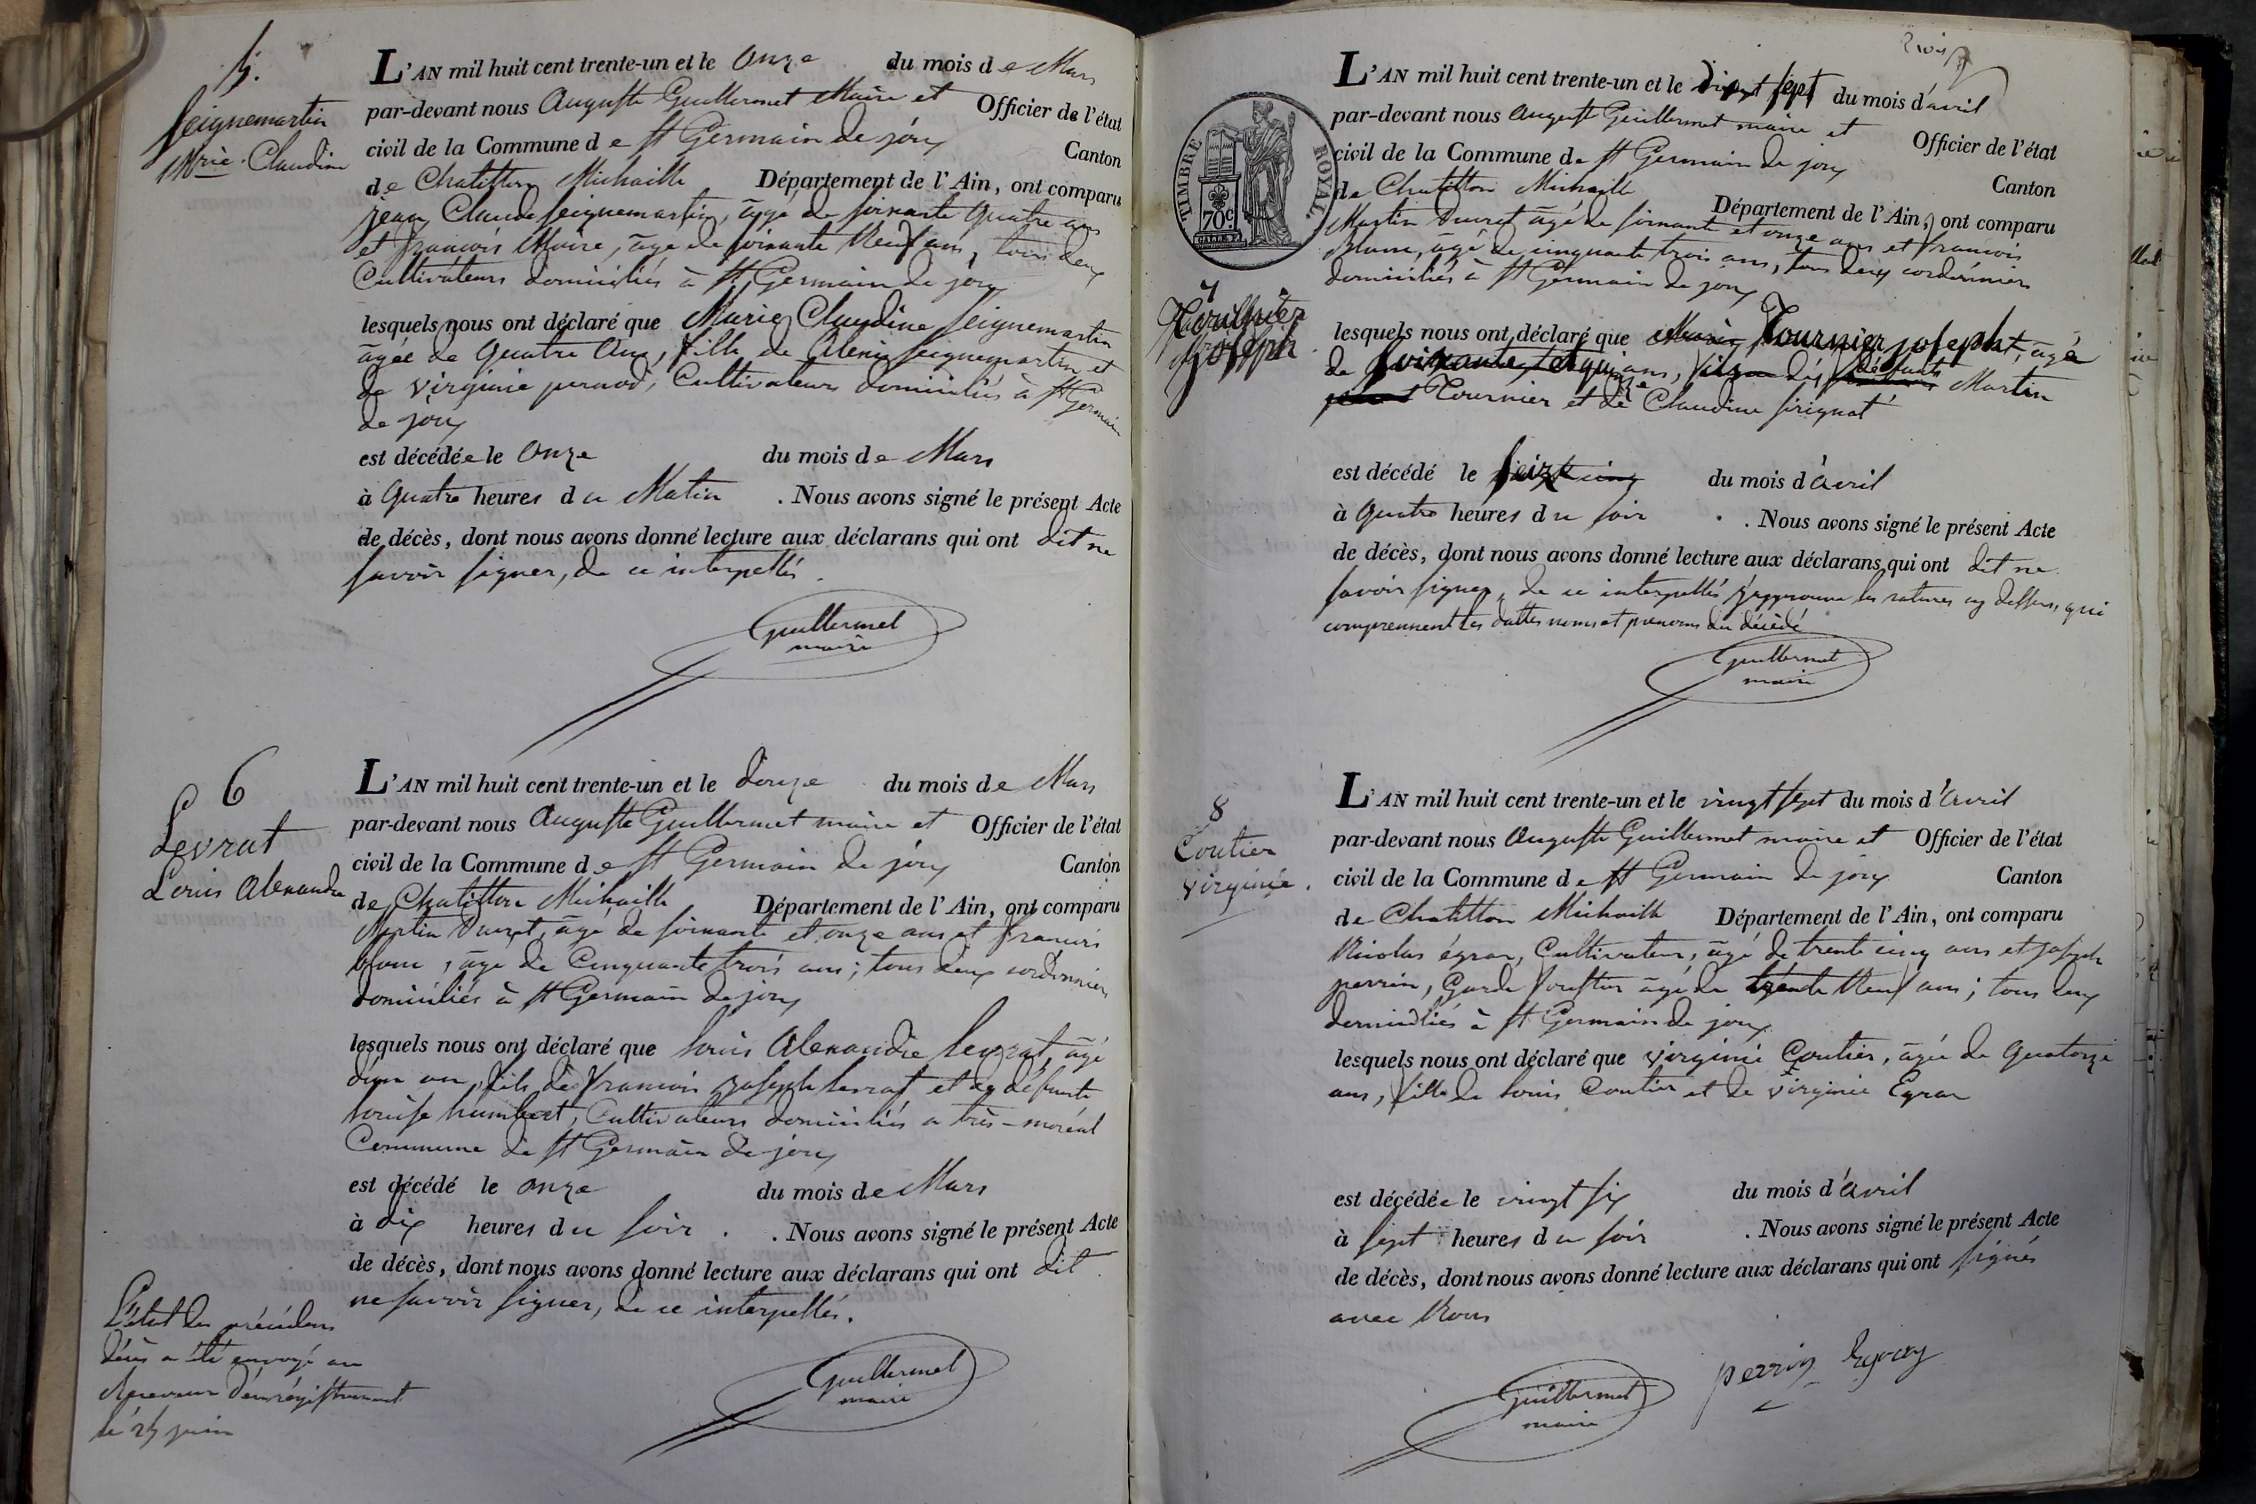 5.
Seignemartin
Mrie Claudine
L'AN mil huit cent trente-un et le onze du mois de Mars
par-devant nous Auguste Guillermet Maire et Officier de l'état
civil de la Commune de St Germain de joux Canton
de Chatillon Michaille Département de l'Ain, ont comparu
jean Claude Seignemartin, âgé de soixante quatre ans
et francois Maire, âgé de soixante Neuf ans, tous deux
Cultivateurs domiciliés à St Germain de joux
lesquels nous ont déclaré que Marie Claudine Seignemartin
âgée de Quatre Ans, fille de Alexis Seignemartin et
de virginie pernod, Cultivateurs domiciliés à St Germain
de joux
est décédée le onze du mois de Mars
à Quatre heures du Matin. Nous avons signé le présent Acte
de décès, dont nous avons donné lecture aux déclarans qui ont dit ne
savoir signer, de ce interpellés.
Guillermet
maire
6
Levrat
Louis Alexandre
L'AN mil huit cent trente-un et le douze du mois de Mars
par-devant nous Auguste Guillermet maire et Officier de l'état
civil de la Commune de St Germain de joux Canton
de Chatillon Michaille Département de l'Ain, ont comparu
Martin Ducret, âgé de soixante et onze ans et francois
blanc, âgé de Cinquante trois ans; tous deux cordonniers
domiciliés à St Germain de joux
lesquels nous ont déclaré que Louis Alexandre Levrat, âgé
d'un an, fils de francois joseph Levrat et de défunte
Louise humbert, Cultivateurs domiciliés a très-moréal
Commune de St Germain de joux
est décédé le onze du mois de Mars
à dix heures du soir. Nous avons signé le présent Acte
de décès, dont nous avons donné lecture aux déclarans qui ont dit
ne savoir signer, de ce interpellés.
L'état des précédens
décès a été envoyé au
Receveur d'enregistrement
le 25 juin
Guillermet
maire
TIMBRE ROYAL.
70c
L'AN mil huit cent trente-un et le dixsept du mois d'avril
par-devant nous Auguste Guillermet maire et Officier de l'état
civil de la Commune de St Germain de joux Canton
de Chatillon Michaille Département de l'Ain, ont comparu
Martin Ducret âgé de soixante et onze ans et francois
blanc, âgé de cinquante trois ans, tous deux cordonniers
domiciliés à St Germain de joux
7
Tournier
joseph
lesquels nous ont déclaré que Tournier joseph, âgé
de soixante et quinze ans, fils des défunts Martin
Tournier et de Claudine sirignat
est décédé le seize du mois d'avril
à Quatre heures du soir. Nous avons signé le présent Acte
de décès, dont nous avons donné lecture aux déclarans qui ont dit ne
savoir signer, de ce interpellés j'approuve les ratures cy dessus, qui
comprennent les dattes noms et prenoms du décédé
Guillermet
maire
8
Coutier
virginie.
L'AN mil huit cent trente-un et le vingt sept du mois d'avril
par-devant nous Auguste Guillermet maire et Officier de l'état
civil de la Commune de St Germain de joux Canton
de Chatillon Michaille Département de l'Ain, ont comparu
Nicolas égraz, Cultivateur, âgé de trente cinq ans et joseph
perrin, Garde foustier âgé de trente Neuf ans; tous deux
domiciliés à St Germain de joux
lesquels nous ont déclaré que virginie Coutier, âgée de Quatorze
ans, fille de Louis Coutier et de virginie Egraz
est décédée le vingt six du mois d'avril
à sept heures du soir. Nous avons signé le présent Acte
de décès, dont nous avons donné lecture aux déclarans qui ont signés
avec Nous
Guillermet
maire
perrin